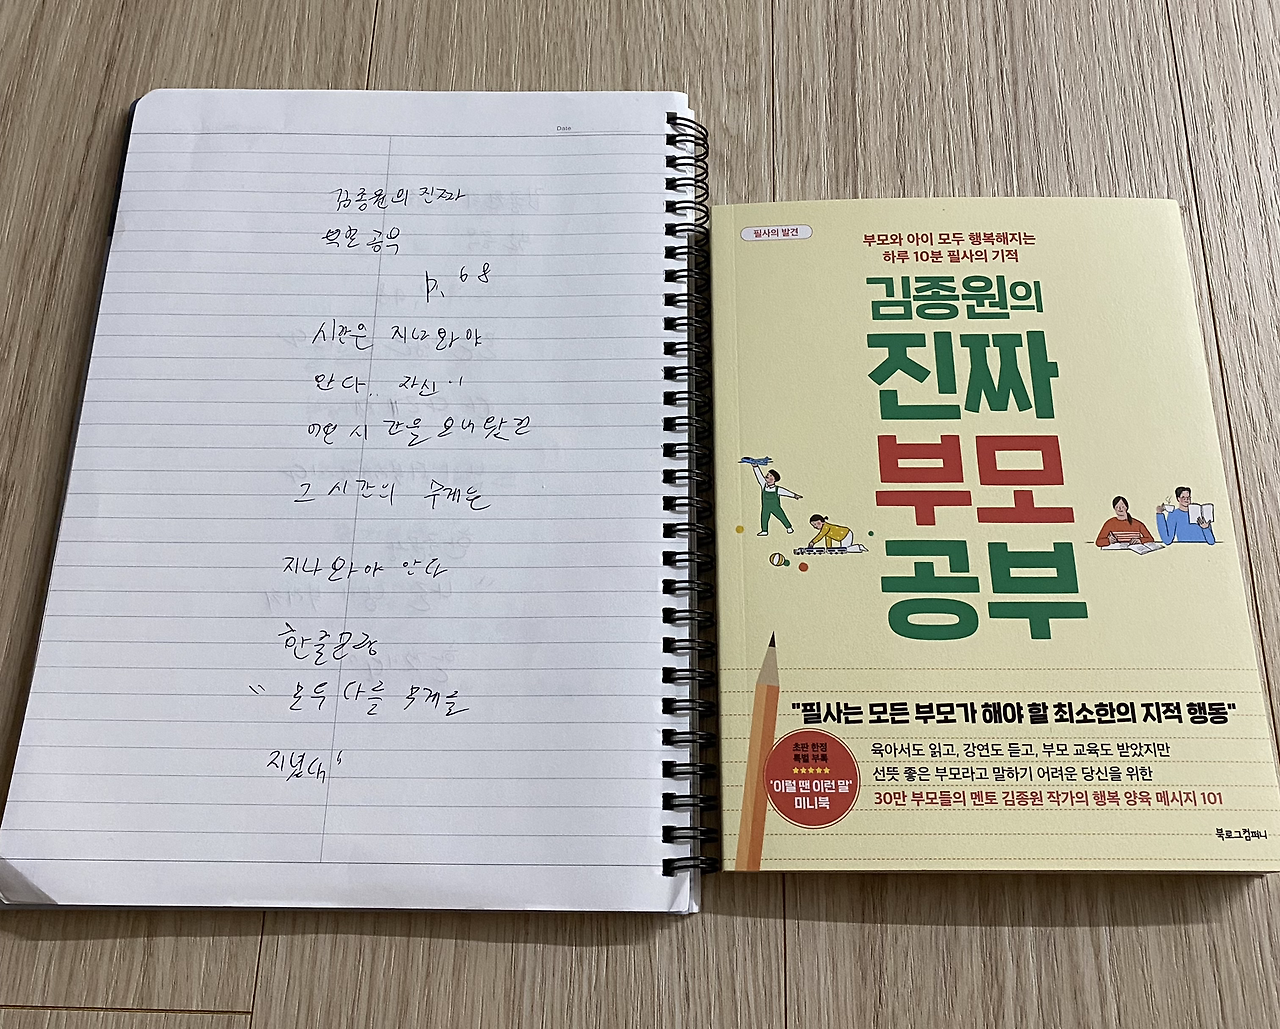 Date
김종원의 진짜
부모 공부
p. 68
시간은 지나와야
안다.. 자신이
어떤 시간을 보내왔던
그 시간의 무게는
지나와야 안다
한줄문장
" 모두 다를 무게를
지녔다"
필사의 발견
부모와 아이 모두 행복해지는
하루 10분 필사의 기적
김종원의
진짜
부모
공부
"필사는 모든 부모가 해야 할 최소한의 지적 행동"
초판 한정
특별 부록
★★★★★
'이럴 땐 이런 말'
미니북
육아서도 읽고, 강연도 듣고, 부모 교육도 받았지만
선뜻 좋은 부모라고 말하기 어려운 당신을 위한
30만 부모들의 멘토 김종원 작가의 행복 양육 메시지 101
북로그컴퍼니